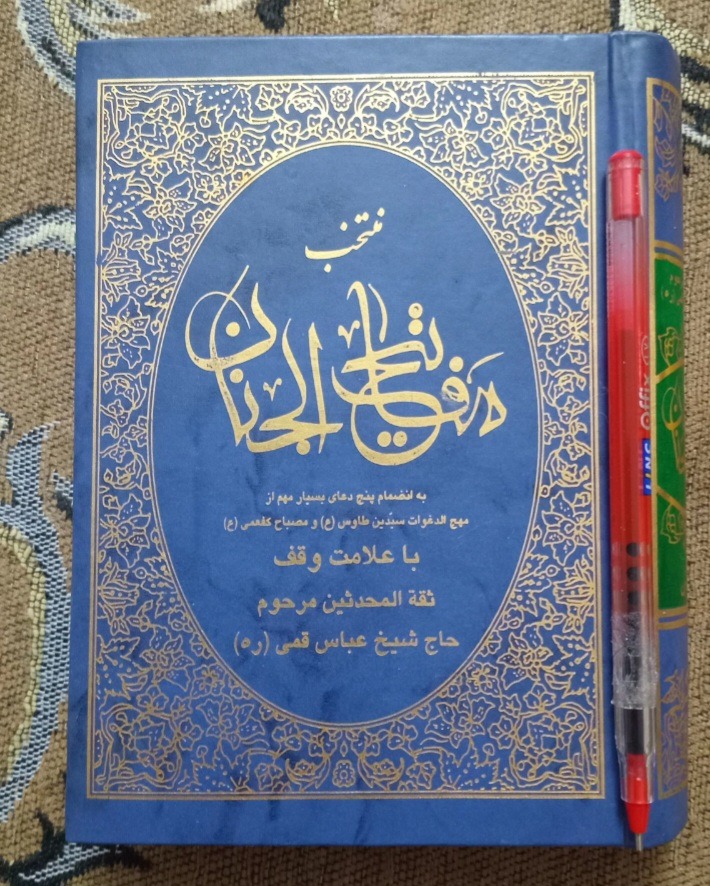 منتخب
مفاتیح الجنان
به انضمام پنج دعای بسیار مهم از
مهج الدعوات سیدبن طاوس (ع) و مصباح کفعمی (ع)
با علامت وقف
ثقة المحدثین مرحوم
حاج شیخ عباس قمی (ره)
Offix